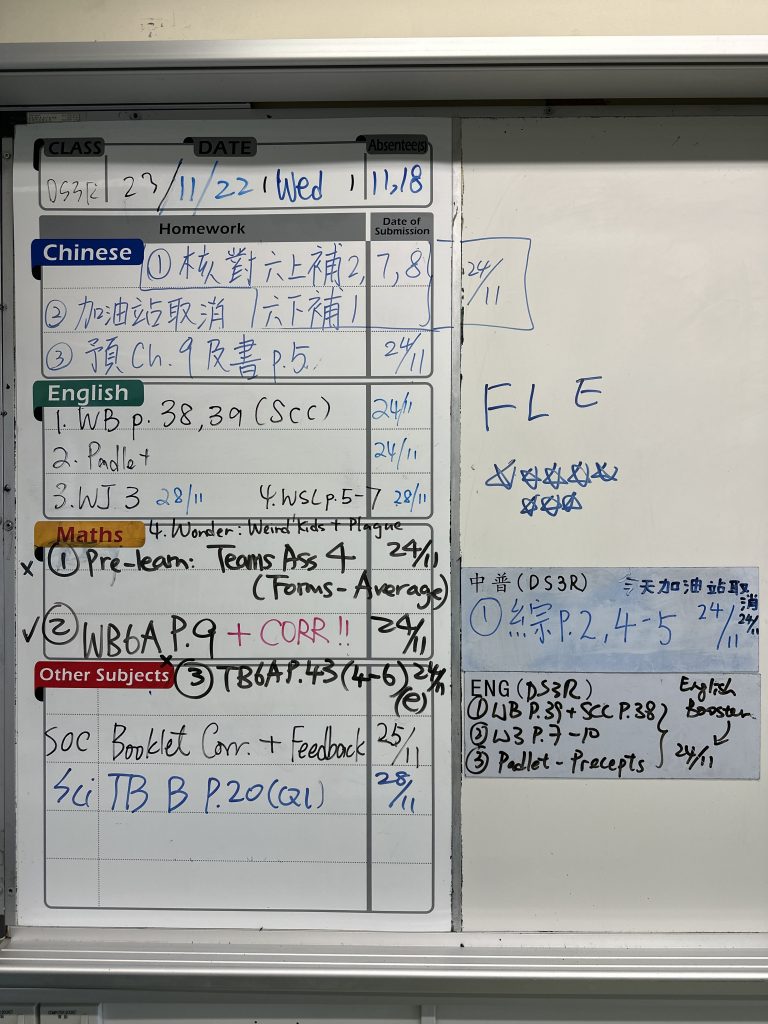 CLASS DATE Absentee(s)
DS3R 23/11/22 (Wed) 11,18
Homework Date of Submission
Chinese
① 核對六上補2,7,8 24/11
② 加油站取消 六下補1
③ 預Ch.9及書p.5 24/11
English
1. WB p.38,39 (SCC) 24/11
2. Padlet 24/11
3. WJ 3 28/11 4. WSL p.5-7 28/11
4. Wonder: Weird Kids + Plague
Maths
x ① Pre-learn: Teams Ass 4 24/11
(Forms - Average)
✓ ② WB6A P.9 + CORR!! 24/11
Other Subjects
x ③ TB6A P.43 (4-6) 24/11
(e)
SOC Booklet Corr. + Feedback 25/11
Sci TB B P.20 (Q1) 28/11
FLE
中普(DS3R) 今天加油站取消
① 綜P.2,4-5 24/11 24/11
ENG(DS3R) English Booster
① WB P.39 + SCC P.38
② WJ P.7-10
③ Padlet - Precepts 24/11